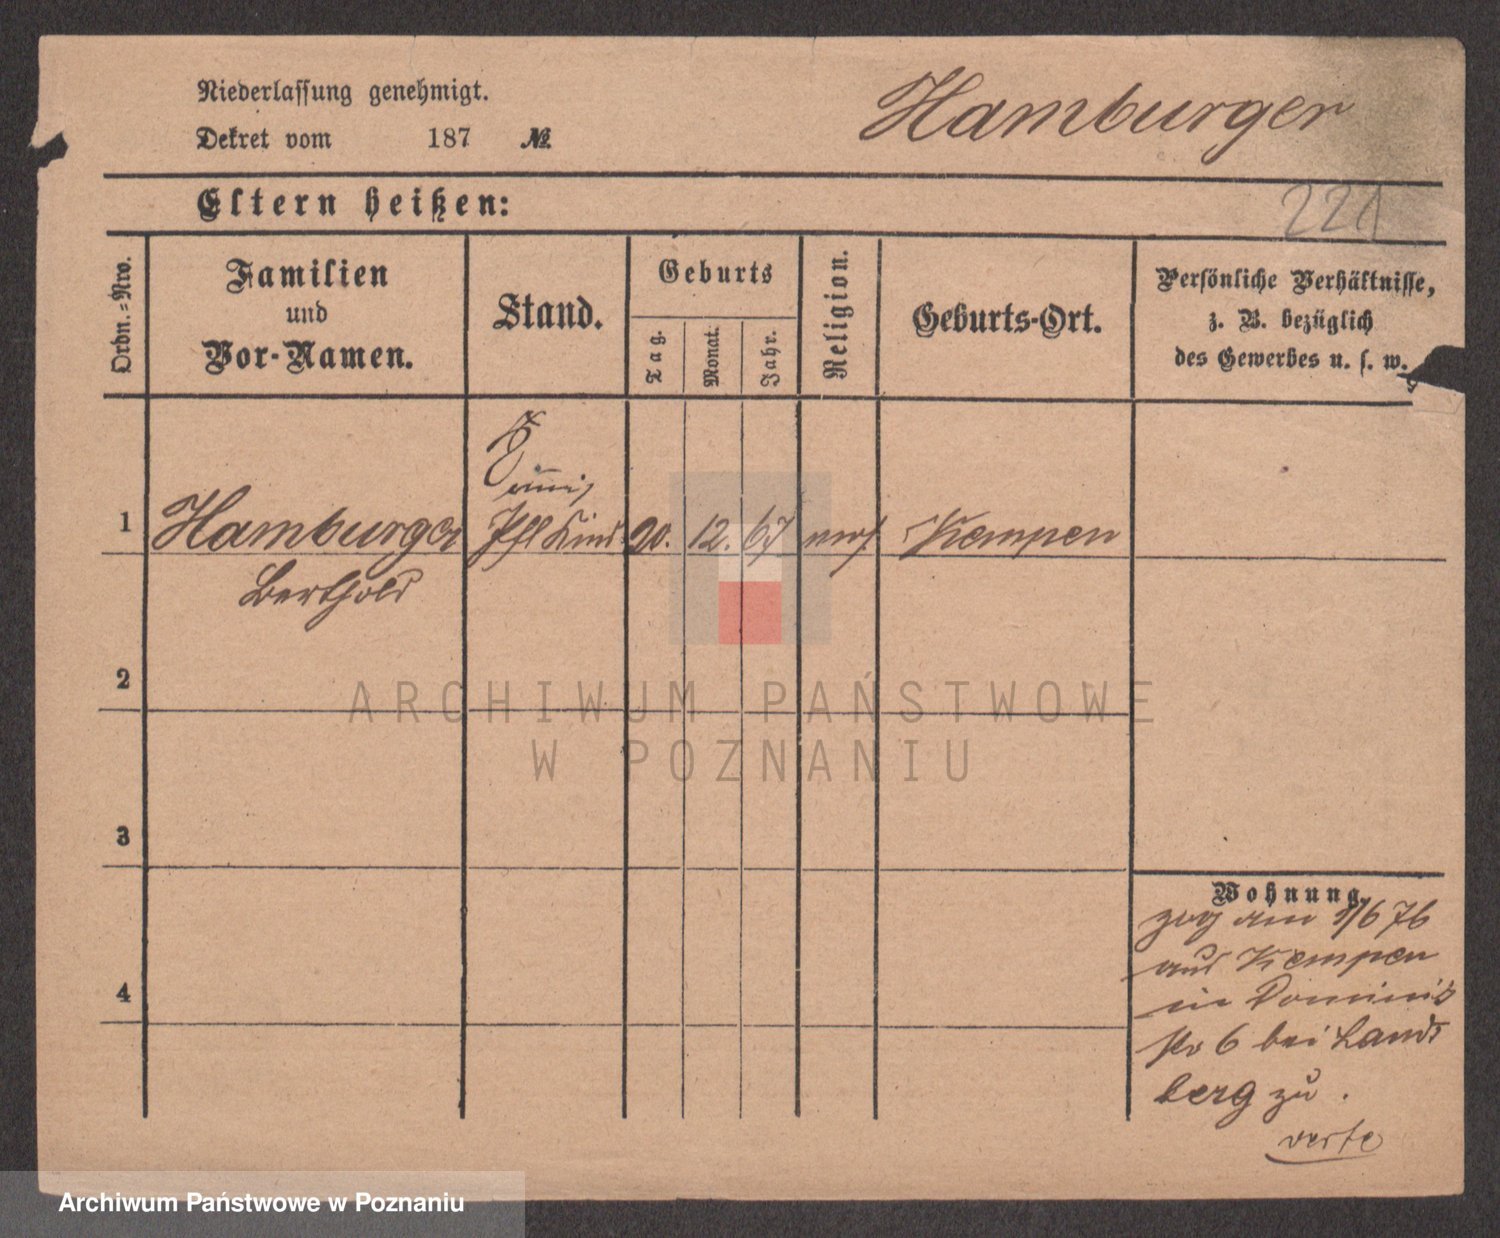 Niederlassung genehmigt.
Hamburger
Dekret vom 187 №
Eltern heißen:
221
Ordn.-Nro.
Familien
und
Vor-Namen.
Stand.
Geburts
Tag.
Monat.
Jahr.
Religion.
Geburts-Ort.
Persönliche Verhältnisse,
z. B. bezüglich
des Gewerbes u. s. w.
1 Hamburger 12. 67 mos. Kempen
Berthold
2
3
4
Wohnung.
zog am 1/6 76
aus Kempen
in Dominik
str 6 bei Lands
berg zu.
verte
ARCHIWUM PAŃSTWOWE
W POZNANIU
Archiwum Państwowe w Poznaniu